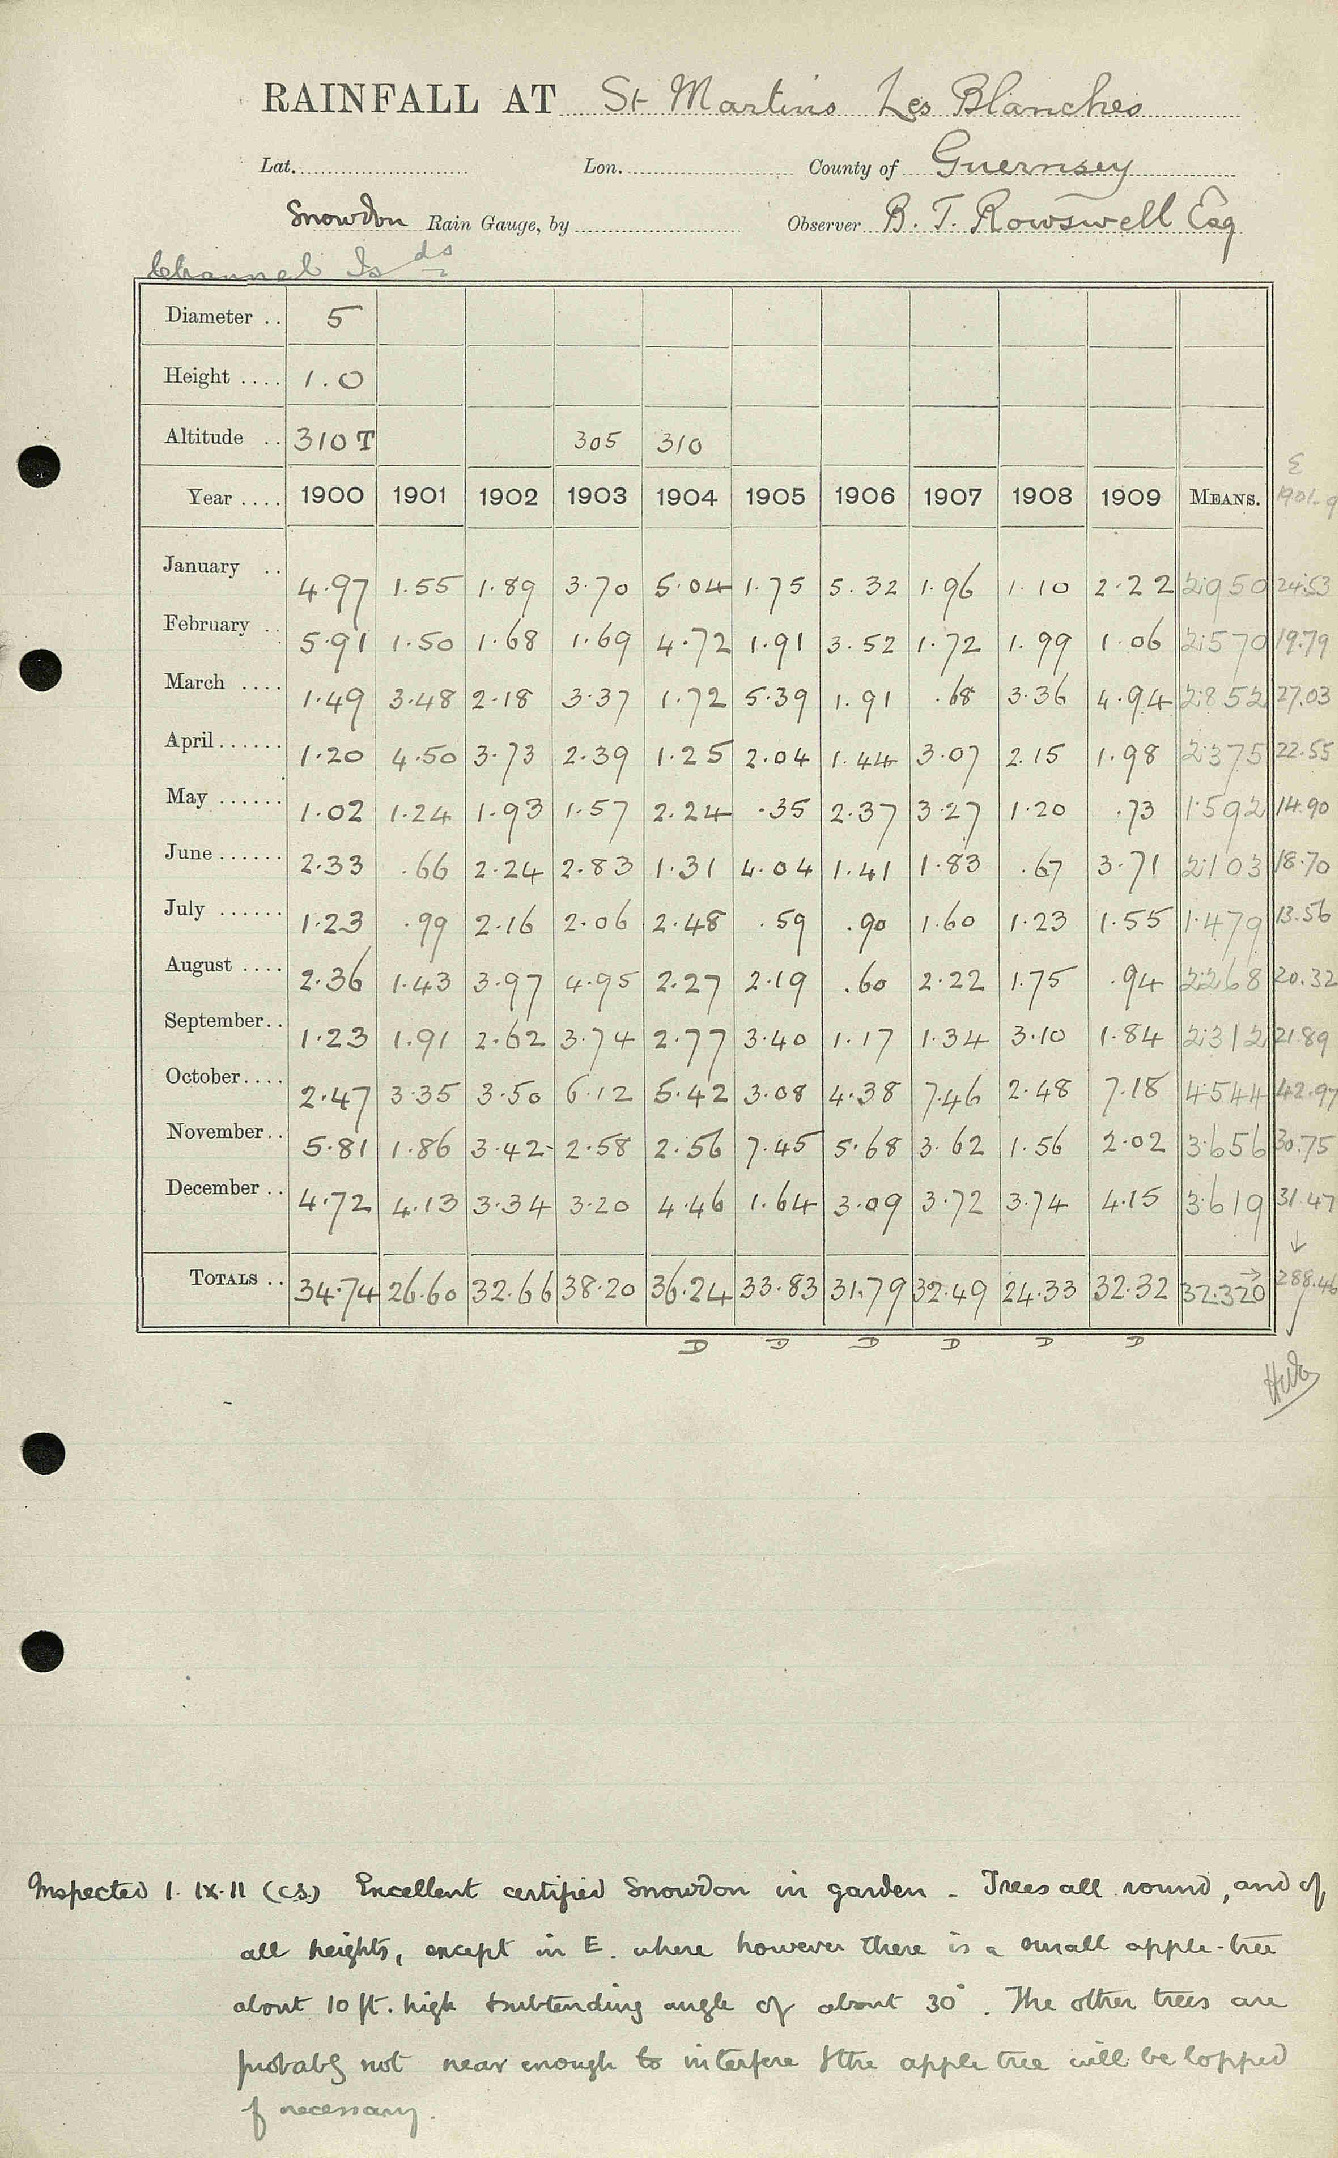 RAINFALL AT St Martins Les Blanches
Lat. Lon. County of Guernsey
Snowdon Rain Gauge, by Observer B. T. Rowswell Esq
Channel Is ds
Diameter .. 5
Height .... 1.0
Altitude .. 310 T 305 310
Σ
Year .... 1900 1901 1902 1903 1904 1905 1906 1907 1908 1909 MEANS. 1901-9
January .. 4.97 1.55 1.89 3.70 5.04 1.75 5.32 1.96 1.10 2.22 2.950 24.53
February .. 5.91 1.50 1.68 1.69 4.72 1.91 3.52 1.72 1.99 1.06 2.570 19.79
March .... 1.49 3.48 2.18 3.37 1.72 5.39 1.91 .68 3.36 4.94 2.852 27.03
April...... 1.20 4.50 3.73 2.39 1.25 2.04 1.44 3.07 2.15 1.98 2.375 22.55
May ...... 1.02 1.24 1.93 1.57 2.24 .35 2.37 3.27 1.20 .73 1.592 14.90
June ...... 2.33 .66 2.24 2.83 1.31 4.04 1.41 1.83 .67 3.71 2.103 18.70
July ...... 1.23 .99 2.16 2.06 2.48 .59 .90 1.60 1.23 1.55 1.479 13.56
August .... 2.36 1.43 3.97 4.95 2.27 2.19 .60 2.22 1.75 .94 2.268 20.32
September.. 1.23 1.91 2.62 3.74 2.77 3.40 1.17 1.34 3.10 1.84 2.312 21.89
October.... 2.47 3.35 3.50 6.12 5.42 3.08 4.38 7.46 2.48 7.18 4.544 42.97
November.. 5.81 1.86 3.42 2.58 2.56 7.45 5.68 3.62 1.56 2.02 3.656 30.75
December .. 4.72 4.13 3.34 3.20 4.46 1.64 3.09 3.72 3.74 4.15 3.619 31.47
TOTALS .. 34.74 26.60 32.66 38.20 36.24 33.83 31.79 32.49 24.33 32.32 32.320 288.46
D D D D D D
Inspected 1. IX. 11 (C.S.) Excellent certified Snowdon in garden - Trees all round, and of
all heights, except in E. where however there is a small apple-tree
about 10 ft. high & subtending angle of about 30°. The other trees are
probably not near enough to interfere & the apple tree will be lopped
if necessary.